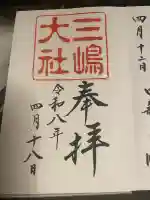 奉拝
三嶋
大社
令和八年
四月十八日
四月十二日